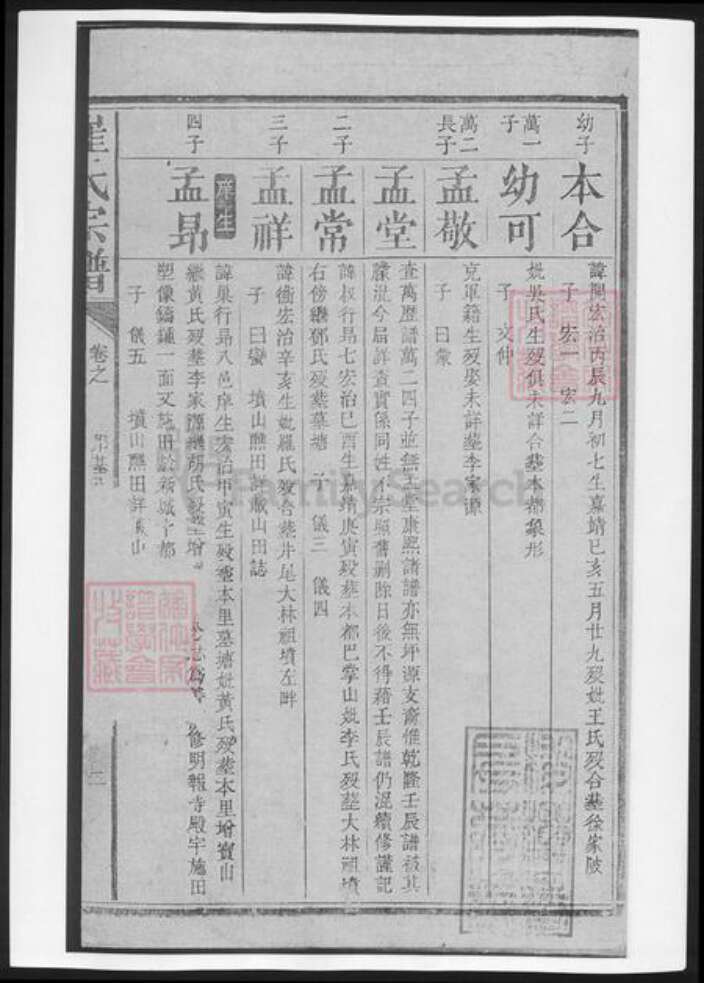 幼子
本合
諱興宏治丙辰九月初七生嘉靖己亥五月廿九歿妣王氏歿合塟徐家陂
子 宏一 宏二
萬一子
幼可
妣吳氏生歿俱未詳合塟本都象形
子 文仲
萬二長子
孟敬
克軍籍生歿娶未詳塟李家源
子 曰彙
孟堂
查萬歷譜萬二四子並無孟堂康熙諸譜亦無坪源支裔惟乾隆壬辰譜被其
朦混今屆詳查實係同姓不宗照舊刪除日後不得藉壬辰譜仍混續修謹記
二子
孟常
諱叔行昻七宏治己酉生嘉靖庚寅歿塟本都巴掌山妣李氏歿塟大林祖墳
右傍繼鄧氏歿塟墓塘 子 儀三 儀四
三子
孟祥
諱衝宏治辛亥生妣羅氏歿合塟井尾大林祖墳左畔
子 曰蠻 墳山醮田詳載山田誌
四子
庠生
孟昻
諱巢行昻八邑庠生宏治甲寅生歿塟本里墓塘妣黃氏歿塟本里增寶山
繼黃氏歿塟李家源繼胡氏歿塟增 修明報寺殿宇施田
塑像鑄鍾一面又施田於新城
子 儀五 墳山醮田詳 山
氏宗譜
卷之
FamilySearch